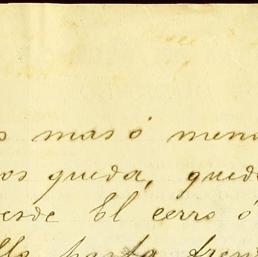 s mas ó men
os queda, qued
esde El cerro ó
lla hasta fren